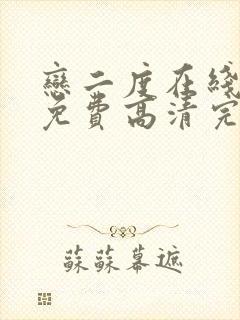 戀二度在綫
免費高清完
蘇蘇幕遮